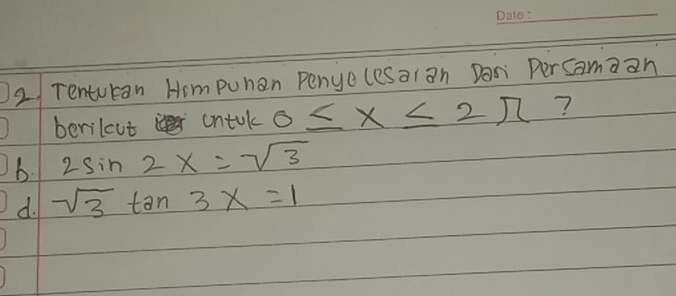 Date :
2. Tentukan Himpunan Penyelesaian Dari Persamaan
berikut untuk 0 ≤ x ≤ 2 π ?
b. 2 sin 2 x = √3
d. √3 tan 3 x = 1